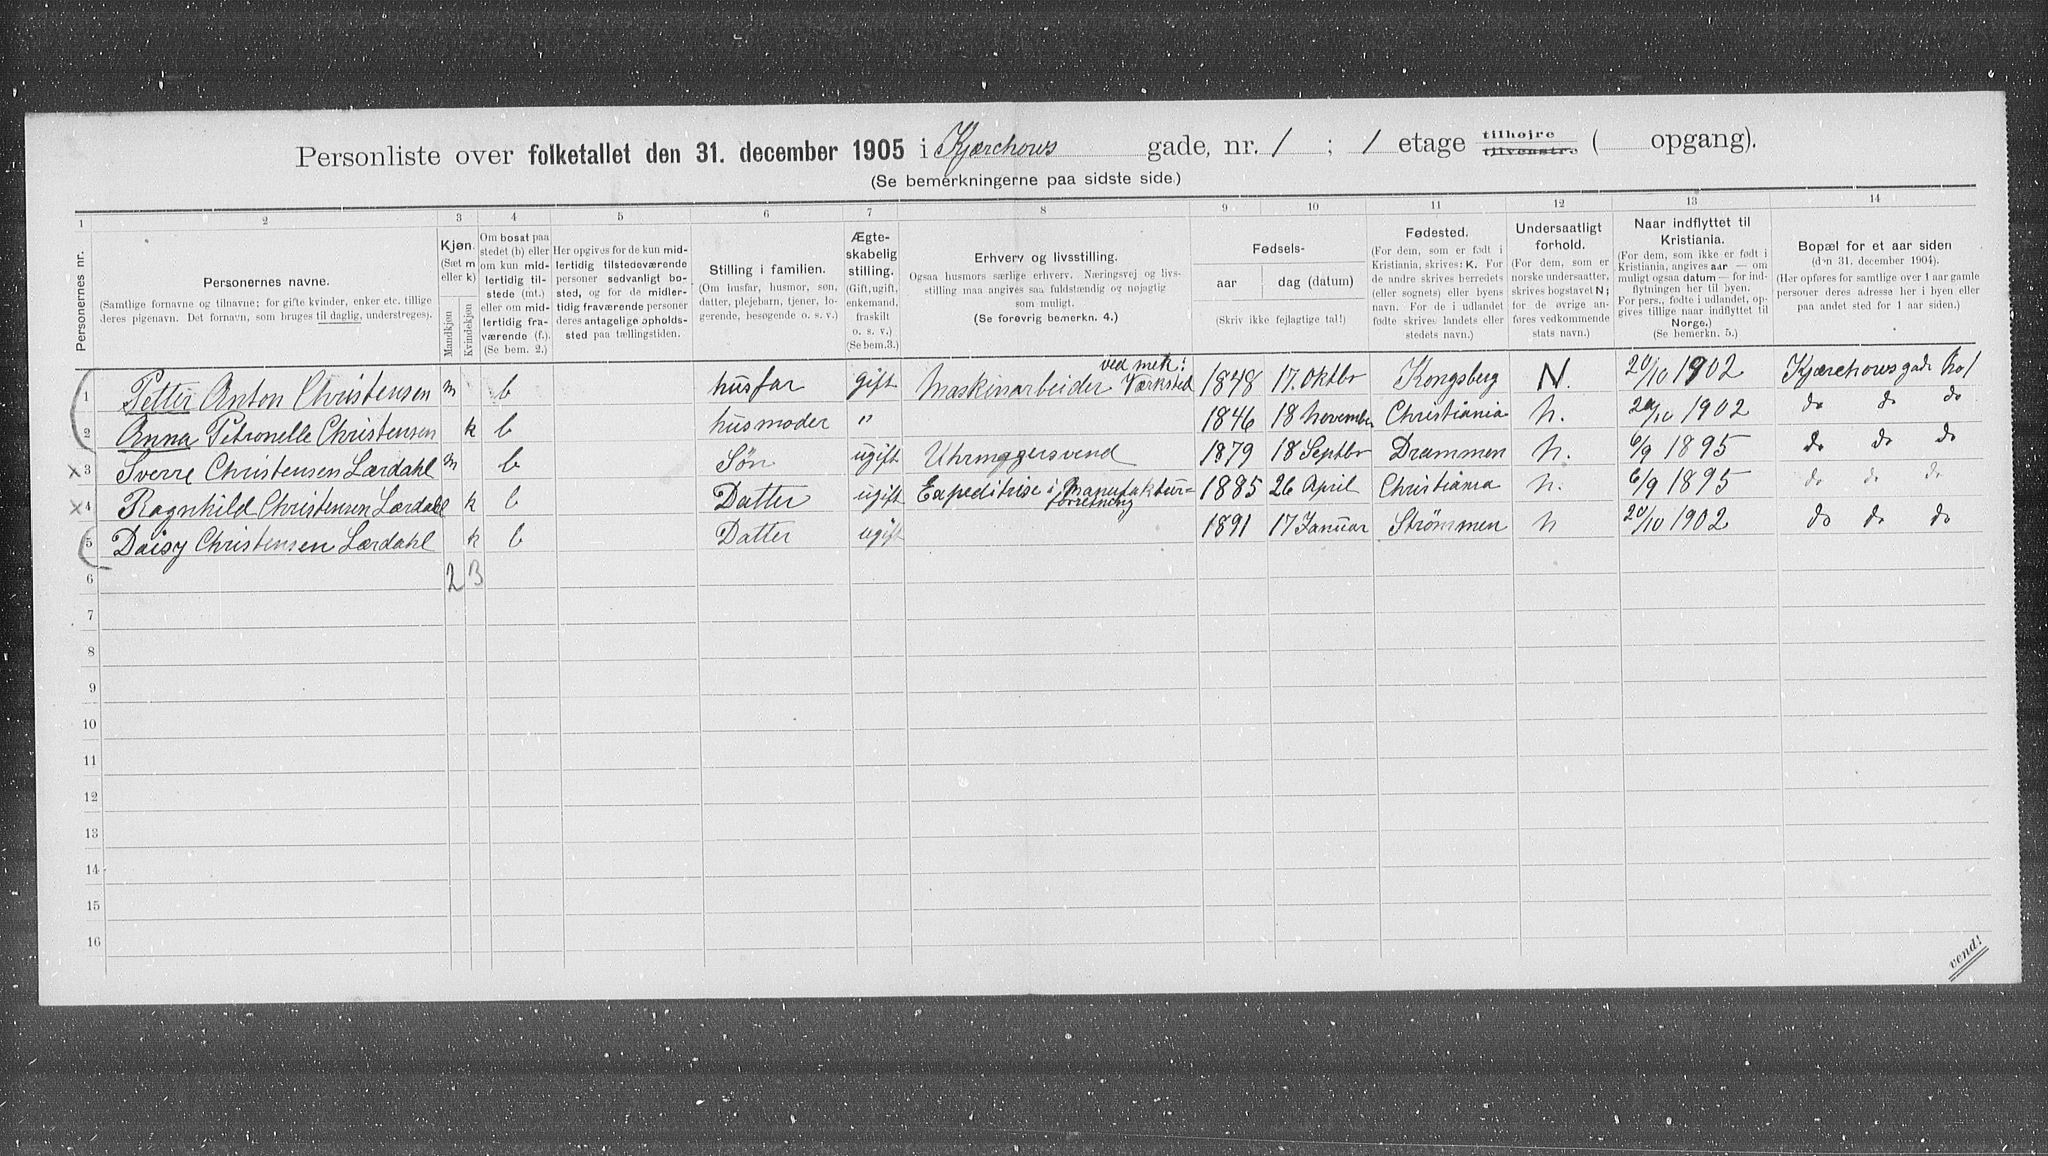 Personliste over folketallet den 31. december 1905 i Kjærchows gade, nr. 1 ; 1 etage tilhøjre tilvenstre ( opgang).
(Se bemerkningerne paa sidste side.)
1 2 3 4 5 6 7 8 9 10 11 12 13 14
Personernes nr.
Personernes navne.
(Samtlige fornavne og tilnavne; for gifte kvinder, enker etc. tillige
deres pigenavn. Det fornavn, som bruges til daglig, understreges).
Kjøn.
(Sæt m
eller k)
Mandkjøn
Kvindekjøn
Om bosat paa
stedet (b) eller
om kun mid-
lertidig til-
stede (mt.)
eller om mid-
lertidig fra-
værende (f.).
(Se bem. 2.)
Her opgives for de kun mid-
lertidig tilstedeværende
personer sedvanligt bo-
sted, og for de midler-
tidig fraværende personer
deres antagelige opholds-
sted paa tællingstiden.
Stilling i familien.
(Om husfar, husmor, søn,
datter, plejebarn, tjener, lo-
gerende, besøgende o. s. v.)
Ægte-
skabelig
stilling.
(Gift, ugift,
enkemand,
fraskilt
o. s. v.)
(Se bem.3.)
Erhverv og livsstilling.
Ogsaa husmors særlige erhverv. Næringsvej og livs-
stilling maa angives saa fuldstændig og nøjagtig
som muligt.
(Se forøvrig bemerkn. 4.)
Fødsels-
aar
dag (datum)
(Skriv ikke fejlagtige tal!)
Fødested.
(For dem, som er født i
Kristiania, skrives: K. For
de andre skrives herredets
(eller sognets) eller byens
navn. For de i udlandet
fødte skrives landets eller
stedets navn.)
Undersaatligt
forhold.
(For dem, som er
norske undersaatter,
skrives bogstavet N;
for de øvrige an-
føres vedkommende
stats navn.)
Naar indflyttet til
Kristiania.
(For dem, som ikke er født i
Kristiania, angives aar — om
muligt ogsaa datum — for ind-
flytningen her til byen.
For pers., fødte i udlandet, op-
gives tillige naar indflyttet til
Norge.)
(Se bemerkn. 5.)
Bopæl for et aar siden
(den 31. december 1904).
(Her opføres for samtlige over 1 aar gamle
personer deres adresse her i byen eller
paa andet sted for 1 aar siden.)
1 Petter Anton Christensen m b husfar gift Maskinarbeider ved mek: Værksted 1848 17. Oktbr Kongsberg N. 20/10 1902 Kjærchowsgade No 1
2 Anna Petronelle Christensen k b husmoder " 1846 18 November Christiania N. 20/10 1902 do do do
x 3 Sverre Christensen Lærdahl m b Søn ugift Uhrmagersvend 1879 18 Septbr Drammen N. 6/9 1895 do do do
x 4 Ragnhild Christensen Lærdahl k b Datter ugift Expeditrise i Manufaktur= forretning 1885 26 April Christiania N. 6/9 1895 do do do
5 Daisy Christensen Lærdahl k b Datter ugift 1891 17 Januar Strömmen N 20/10 1902 do do do
6 2 3
7
8
9
10
11
12
13
14
15
16
vend!